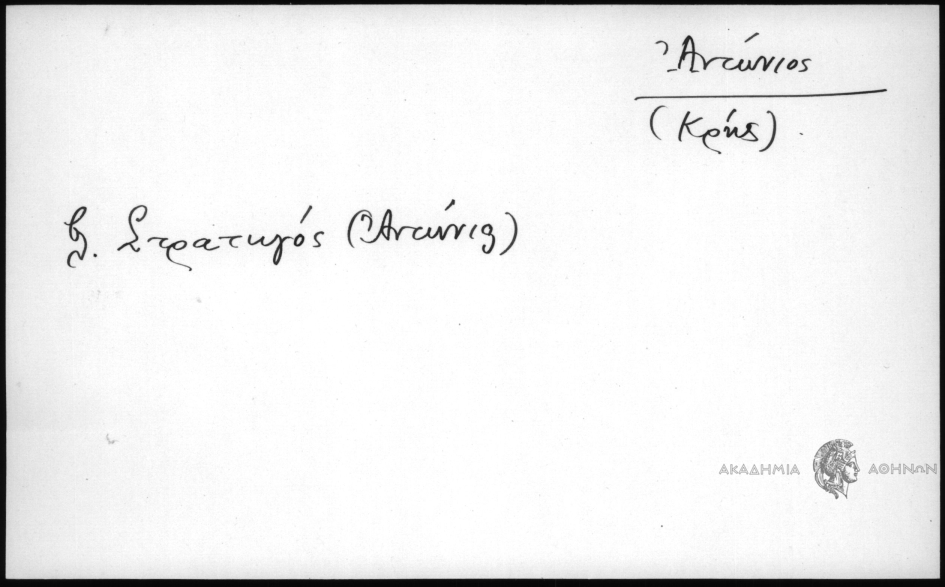 Ἀντώνιος
(Κρής).
β. Στρατηγός (Ἀντώνιος)
ΑΚΑΔΗΜΙΑ ΑΘΗΝΩΝ